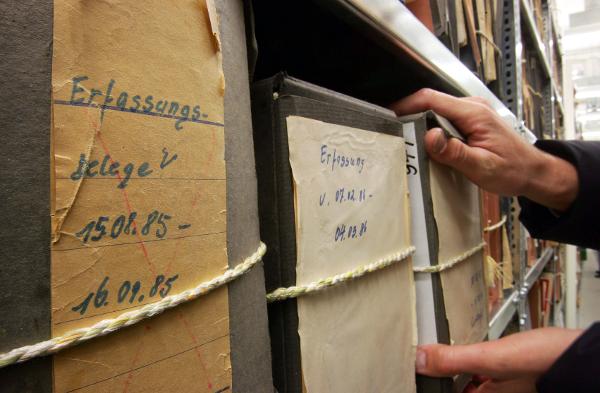 Erfassungs-
belege v
15.08.85 -
16.09.85
Erfassung
v. 07.02.86 -
04.03.86